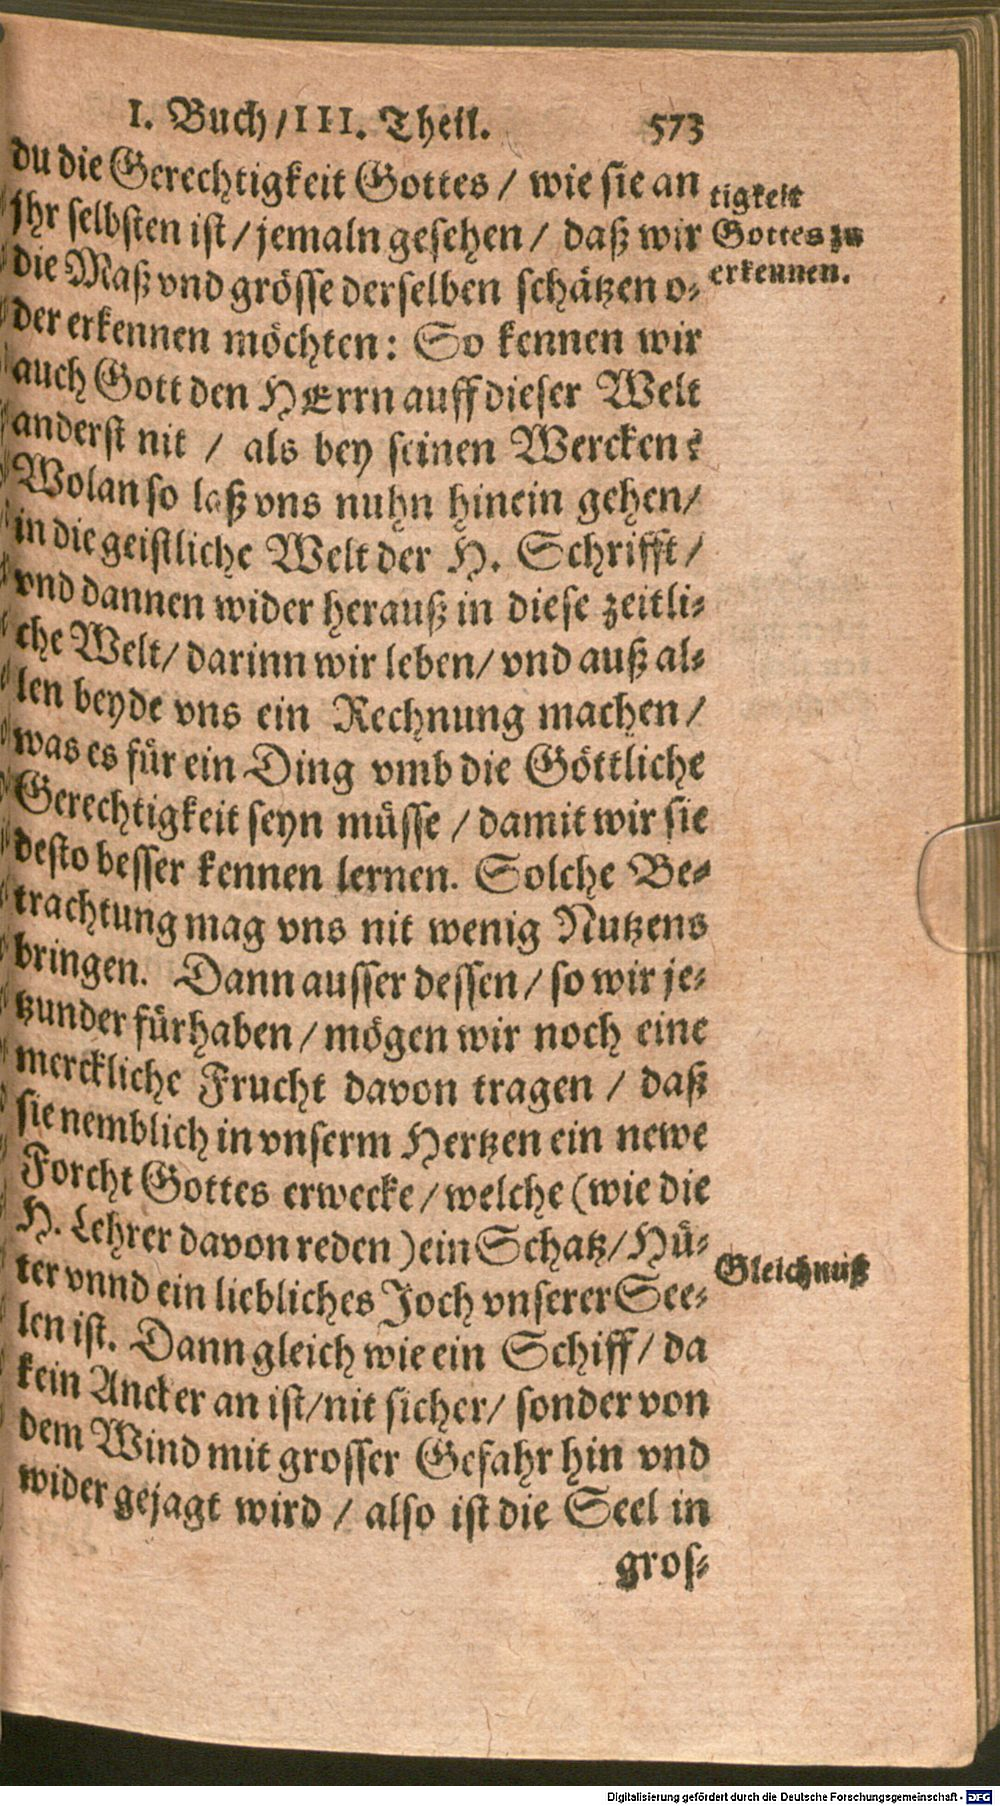 I. Buch / III. Theil. 573
du die Gerechtigkeit Gottes / wie sie an
jhr selbsten ist / jemaln gesehen / daß wir
die Maß vnd grösse derselben schätzen o-
der erkennen möchten: So kennen wir
auch Gott den HErrn auff dieser Welt
anderst nit / als bey seinen Wercken?
Wolan so laß vns nuhn hinein gehen /
in die geistliche Welt der H. Schrifft /
vnd dannen wider herauß in diese zeitli-
che Welt / darinn wir leben / vnd auß al-
len beyde vns ein Rechnung machen /
was es für ein Ding vmb die Göttliche
Gerechtigkeit seyn müsse / damit wir sie
desto besser kennen lernen. Solche Be-
trachtung mag vns nit wenig Nutzens
bringen. Dann ausser dessen / so wir je-
tzunder fürhaben / mögen wir noch eine
merckliche Frucht davon tragen / daß
sie nemblich in vnserm Hertzen ein newe
Forcht Gottes erwecke / welche (wie die
H. Lehrer davon reden) ein Schatz / Hü-
ter vnnd ein liebliches Joch vnserer See-
len ist. Dann gleich wie ein Schiff / da
kein Ancker an ist / nit sicher / sonder von
dem Wind mit grosser Gefahr hin vnd
wider gejagt wird / also ist die Seel in
gros-
tigkeit
Gottes zu
erkennen.
Gleichnuß
Digitalisierung gefördert durch die Deutsche Forschungsgemeinschaft - DFG